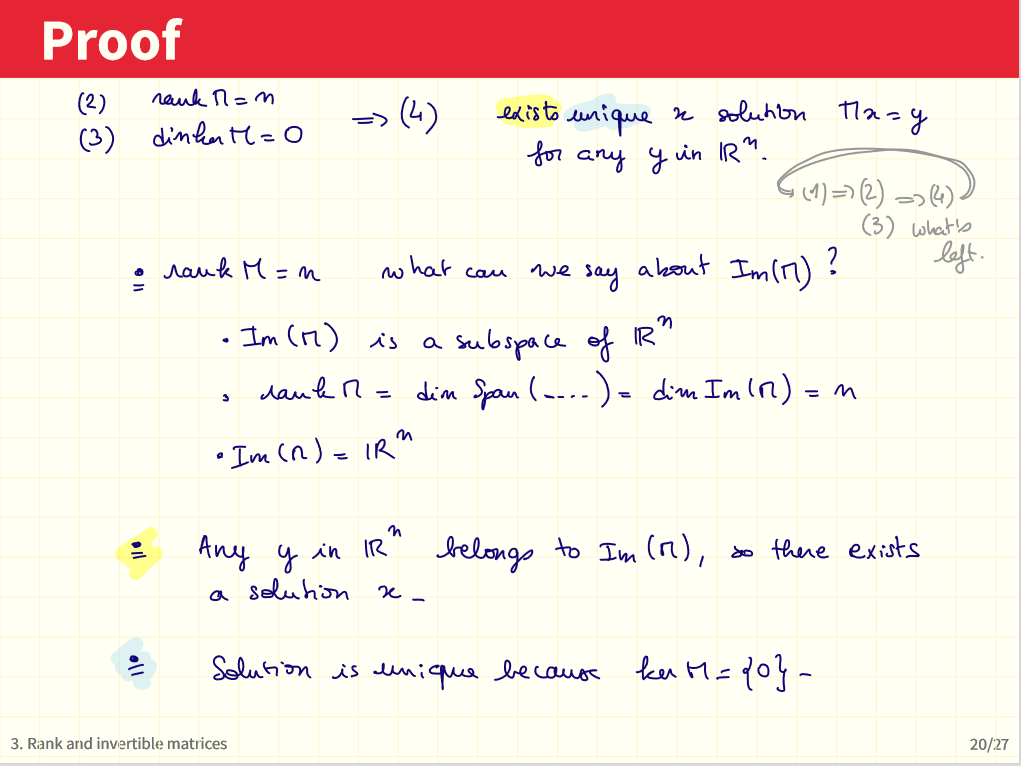 Proof
(2) rank M = n
(3) dim ker M = 0
=> (4) exists unique x solution Mx = y
for any y in ℝⁿ.
(1) => (2) => (4)
(3) what's
left.
rank M = n what can we say about Im(M) ?
• Im(M) is a subspace of ℝⁿ
• rank M = dim Span(....) = dim Im(M) = n
• Im(M) = ℝⁿ
Any y in ℝⁿ belongs to Im(M), so there exists
a solution x –
Solution is unique because ker M = {0} –
3. Rank and invertible matrices
20/27